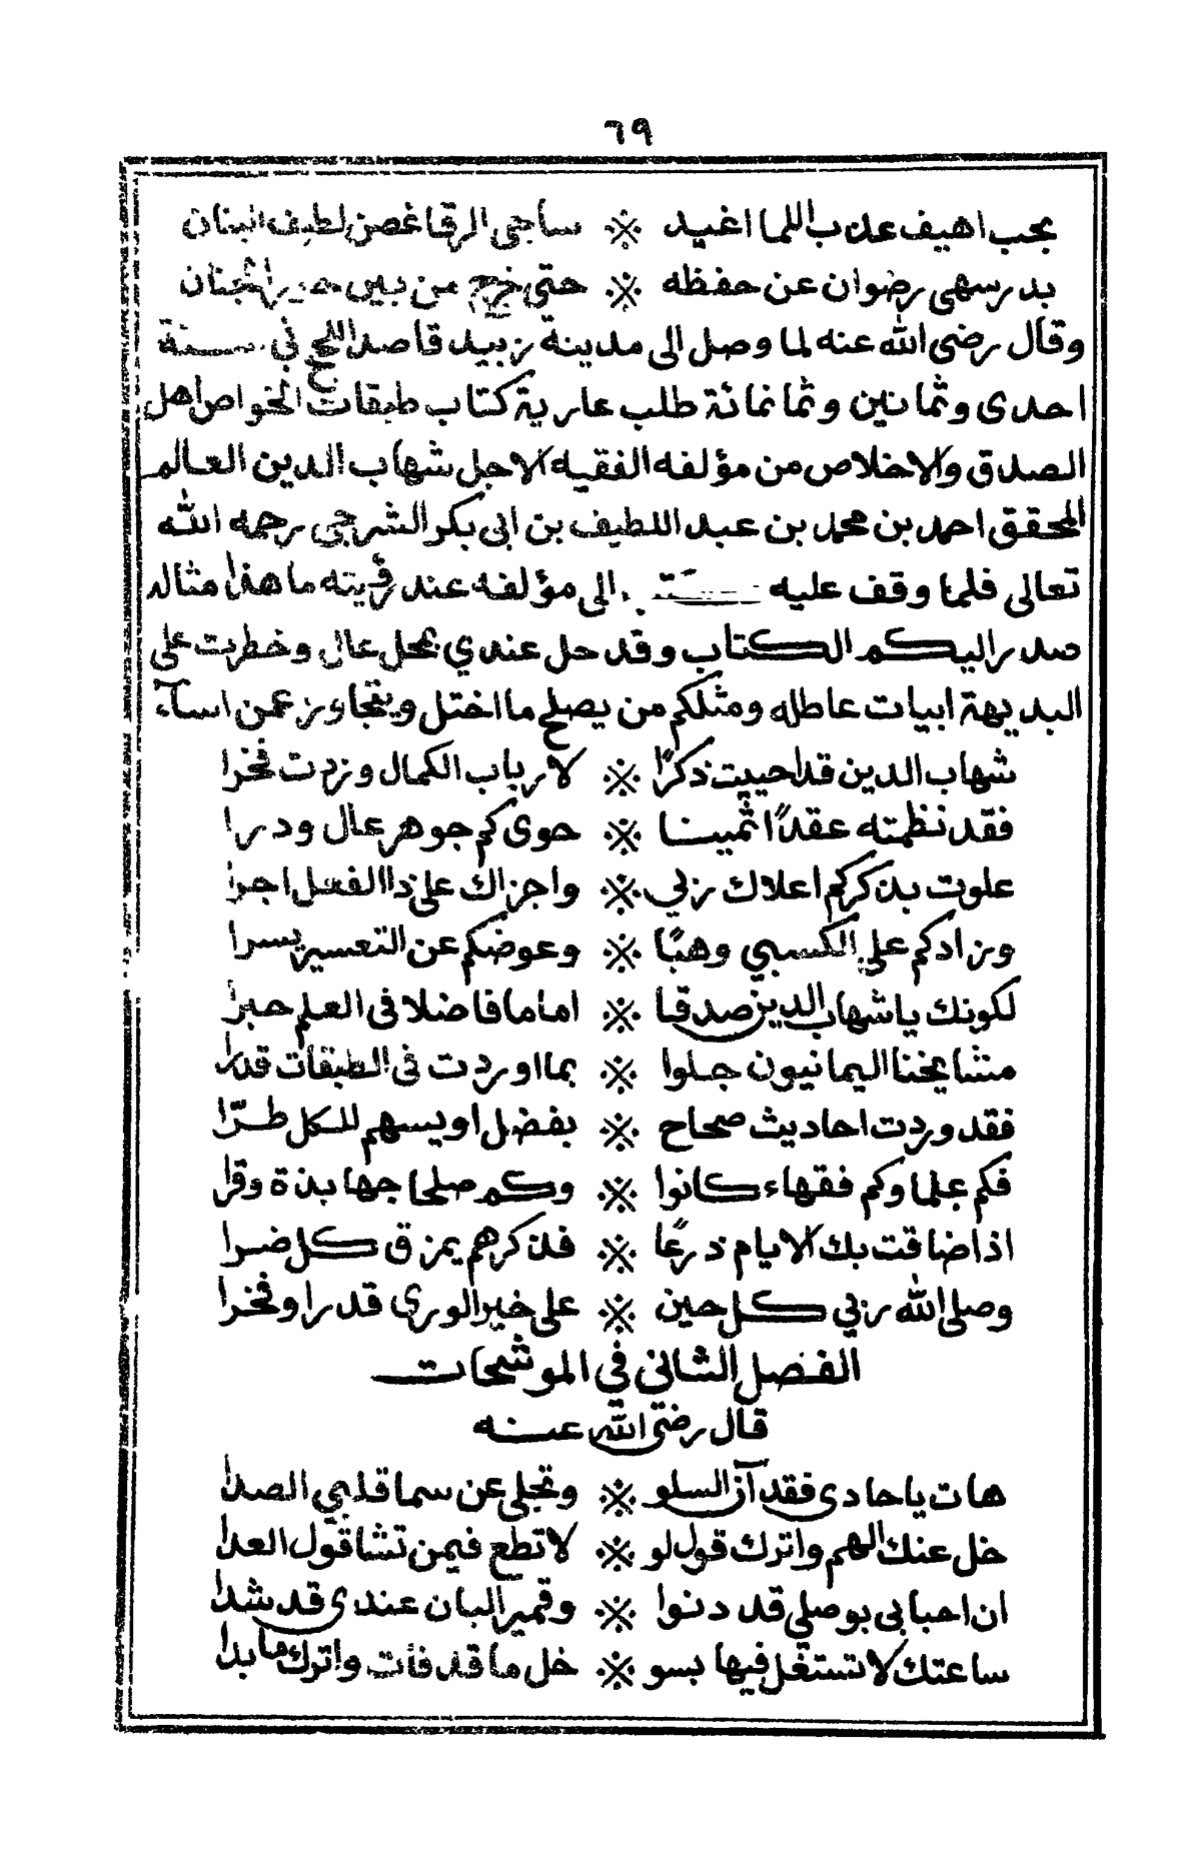 ٦٩
بحب اهيف عذب اللما اغيد ※ ساجي الرقا غصن لطيف البنان
بدر سهى رضوان عن حفظه ※ حتى خرج من بين الجنان
وقال رضى الله عنه لما وصل الى مدينة زبيد قاصد اللحج في سنة
احدى وثمانين وثمانمائة طلب عارية كتاب طبقات الخواص اهل
الصدق والاخلاص من مؤلفه الفقيه الاجل شهاب الدين العالم
المحقق احمد بن محمد بن عبد اللطيف بن ابي بكر الشرجي رحمه الله
تعالى فلما وقف عليه كتب الى مؤلفه عند قريته ما هذا مثاله
صدر اليكم الكتاب وقد حل عندي بمحل عال وخطرت على
البديهة ابيات عاطله ومثلكم من يصلح ما اختل ويتجاوز عمن اسآء
شهاب الدين قد احييت ذكرًا ※ لارباب الكمال وزدت فخرا
فقد نظمته عقدًا ثمينا ※ حوى كم جوهر عال ودرا
علوت بذكركم اعلاك ربي ※ واجزاك على ذا الفعل اجرا
وزادكم على الكسبي وهبًا ※ وعوضكم عن التعسير يسرا
لكونك يا شهاب الدين صدقا ※ اماما فاضلا في العلم حبرا
مشايخنا اليمانيون جلوا ※ بما اوردت في الطبقات قدرا
فقد وردت احاديث صحاح ※ بفضل اويسهم للكل طرّا
فكم علما وكم فقهاء كانوا ※ وكم صلحا جهابذة وقرا
اذا ضاقت بك الايام ذرعًا ※ فذكرهم يمزق كل ضرا
وصلى الله ربي كل حين ※ على خير الورى قدرا وفخرا
الفصل الثاني في الموشحات
قال رضى الله عنه
هات يا حادى فقد آن السلو ※ وتجلى عن سما قلبي الصدا
خل عنك الهم واترك قول لو ※ لا تطع فيمن تشا قول العدا
ان احبابى بوصلى قد دنوا ※ وقمير البان عندى قد شدا
ساعتك لا تستغل فيها بسو ※ خل ما قد فات واترك ما بدا